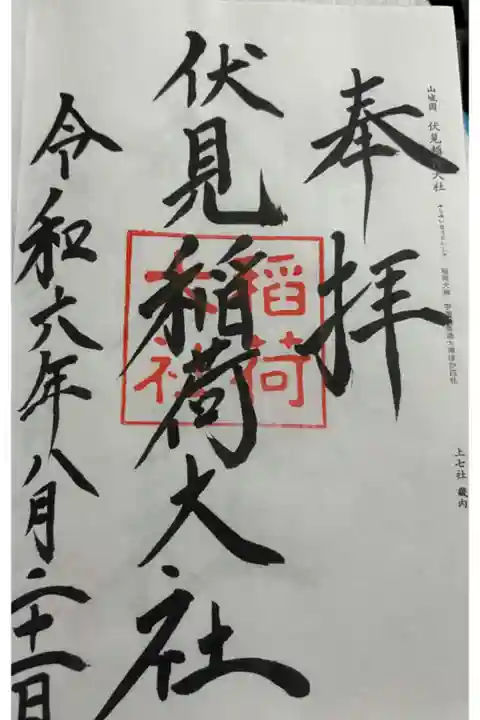 山城国 伏見稲荷大社
上七社 畿内
奉拝
伏見稲荷大社
稲荷
大社
令和六年八月二十一日